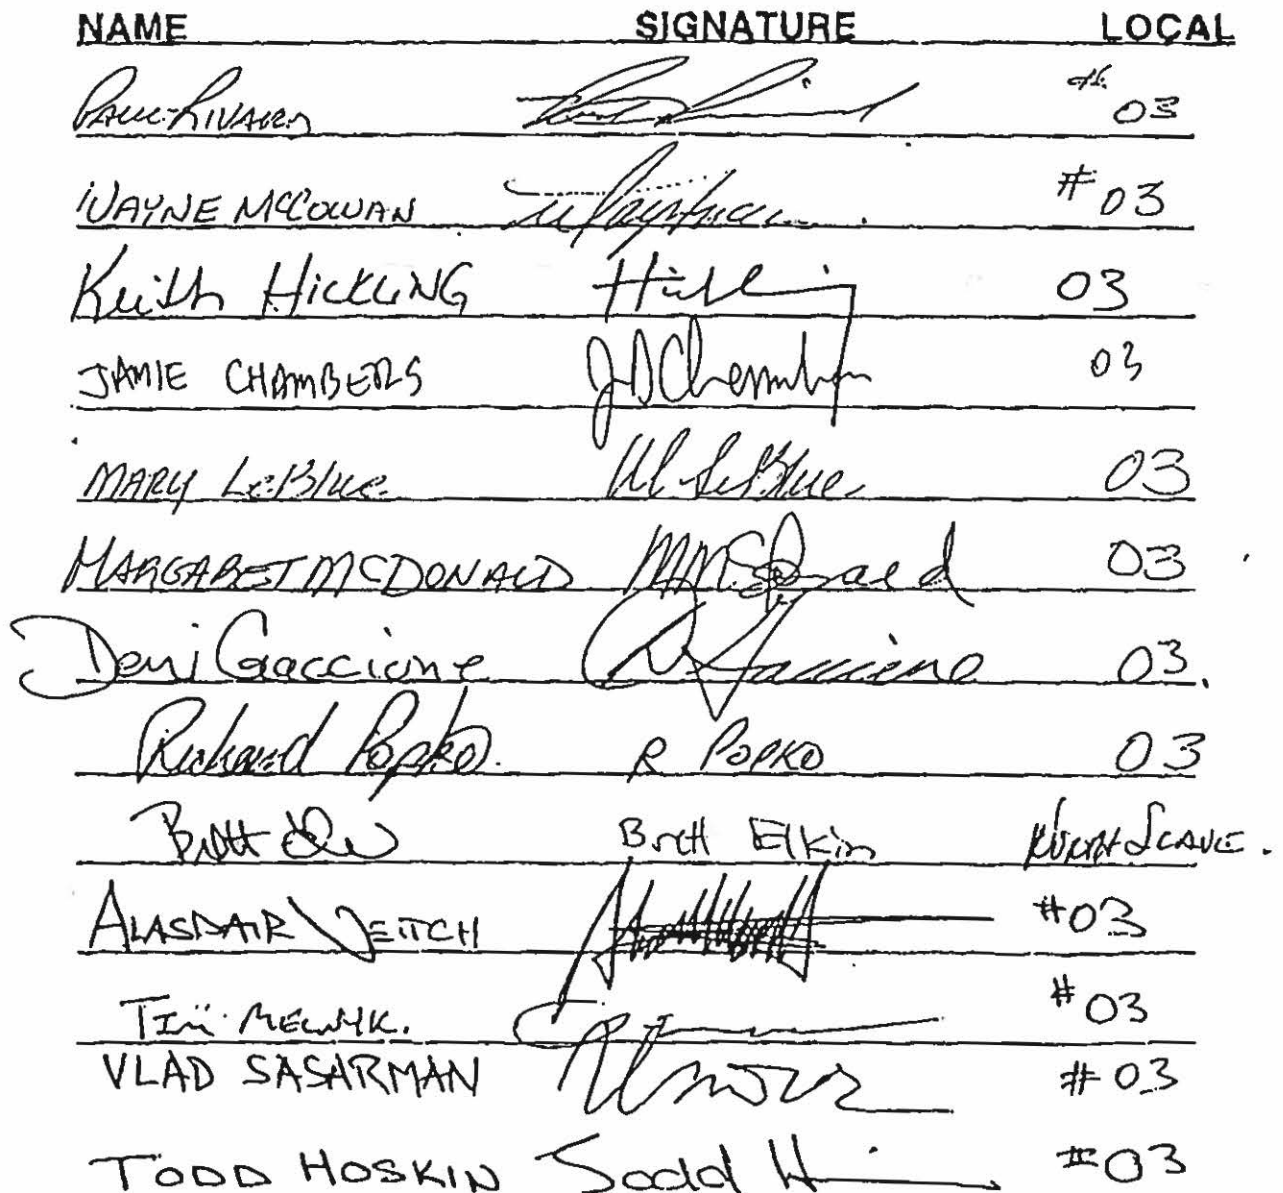 NAME SIGNATURE LOCAL
Paul Rivard 03
WAYNE McCOWAN #03
Keith HICKLING 03
JAMIE CHAMBERS JDChambers 03
MARY LeBlue M LeBlue 03
MARGARET MCDONALD MMcDonald 03
Deni Gaccione 03.
Richard Popko. R POPKO 03
Brett Brett Elkin
ALASDAIR VEITCH #03
Tim MELNYK. #03
VLAD SASARMAN #03
TODD HOSKIN Todd H #03